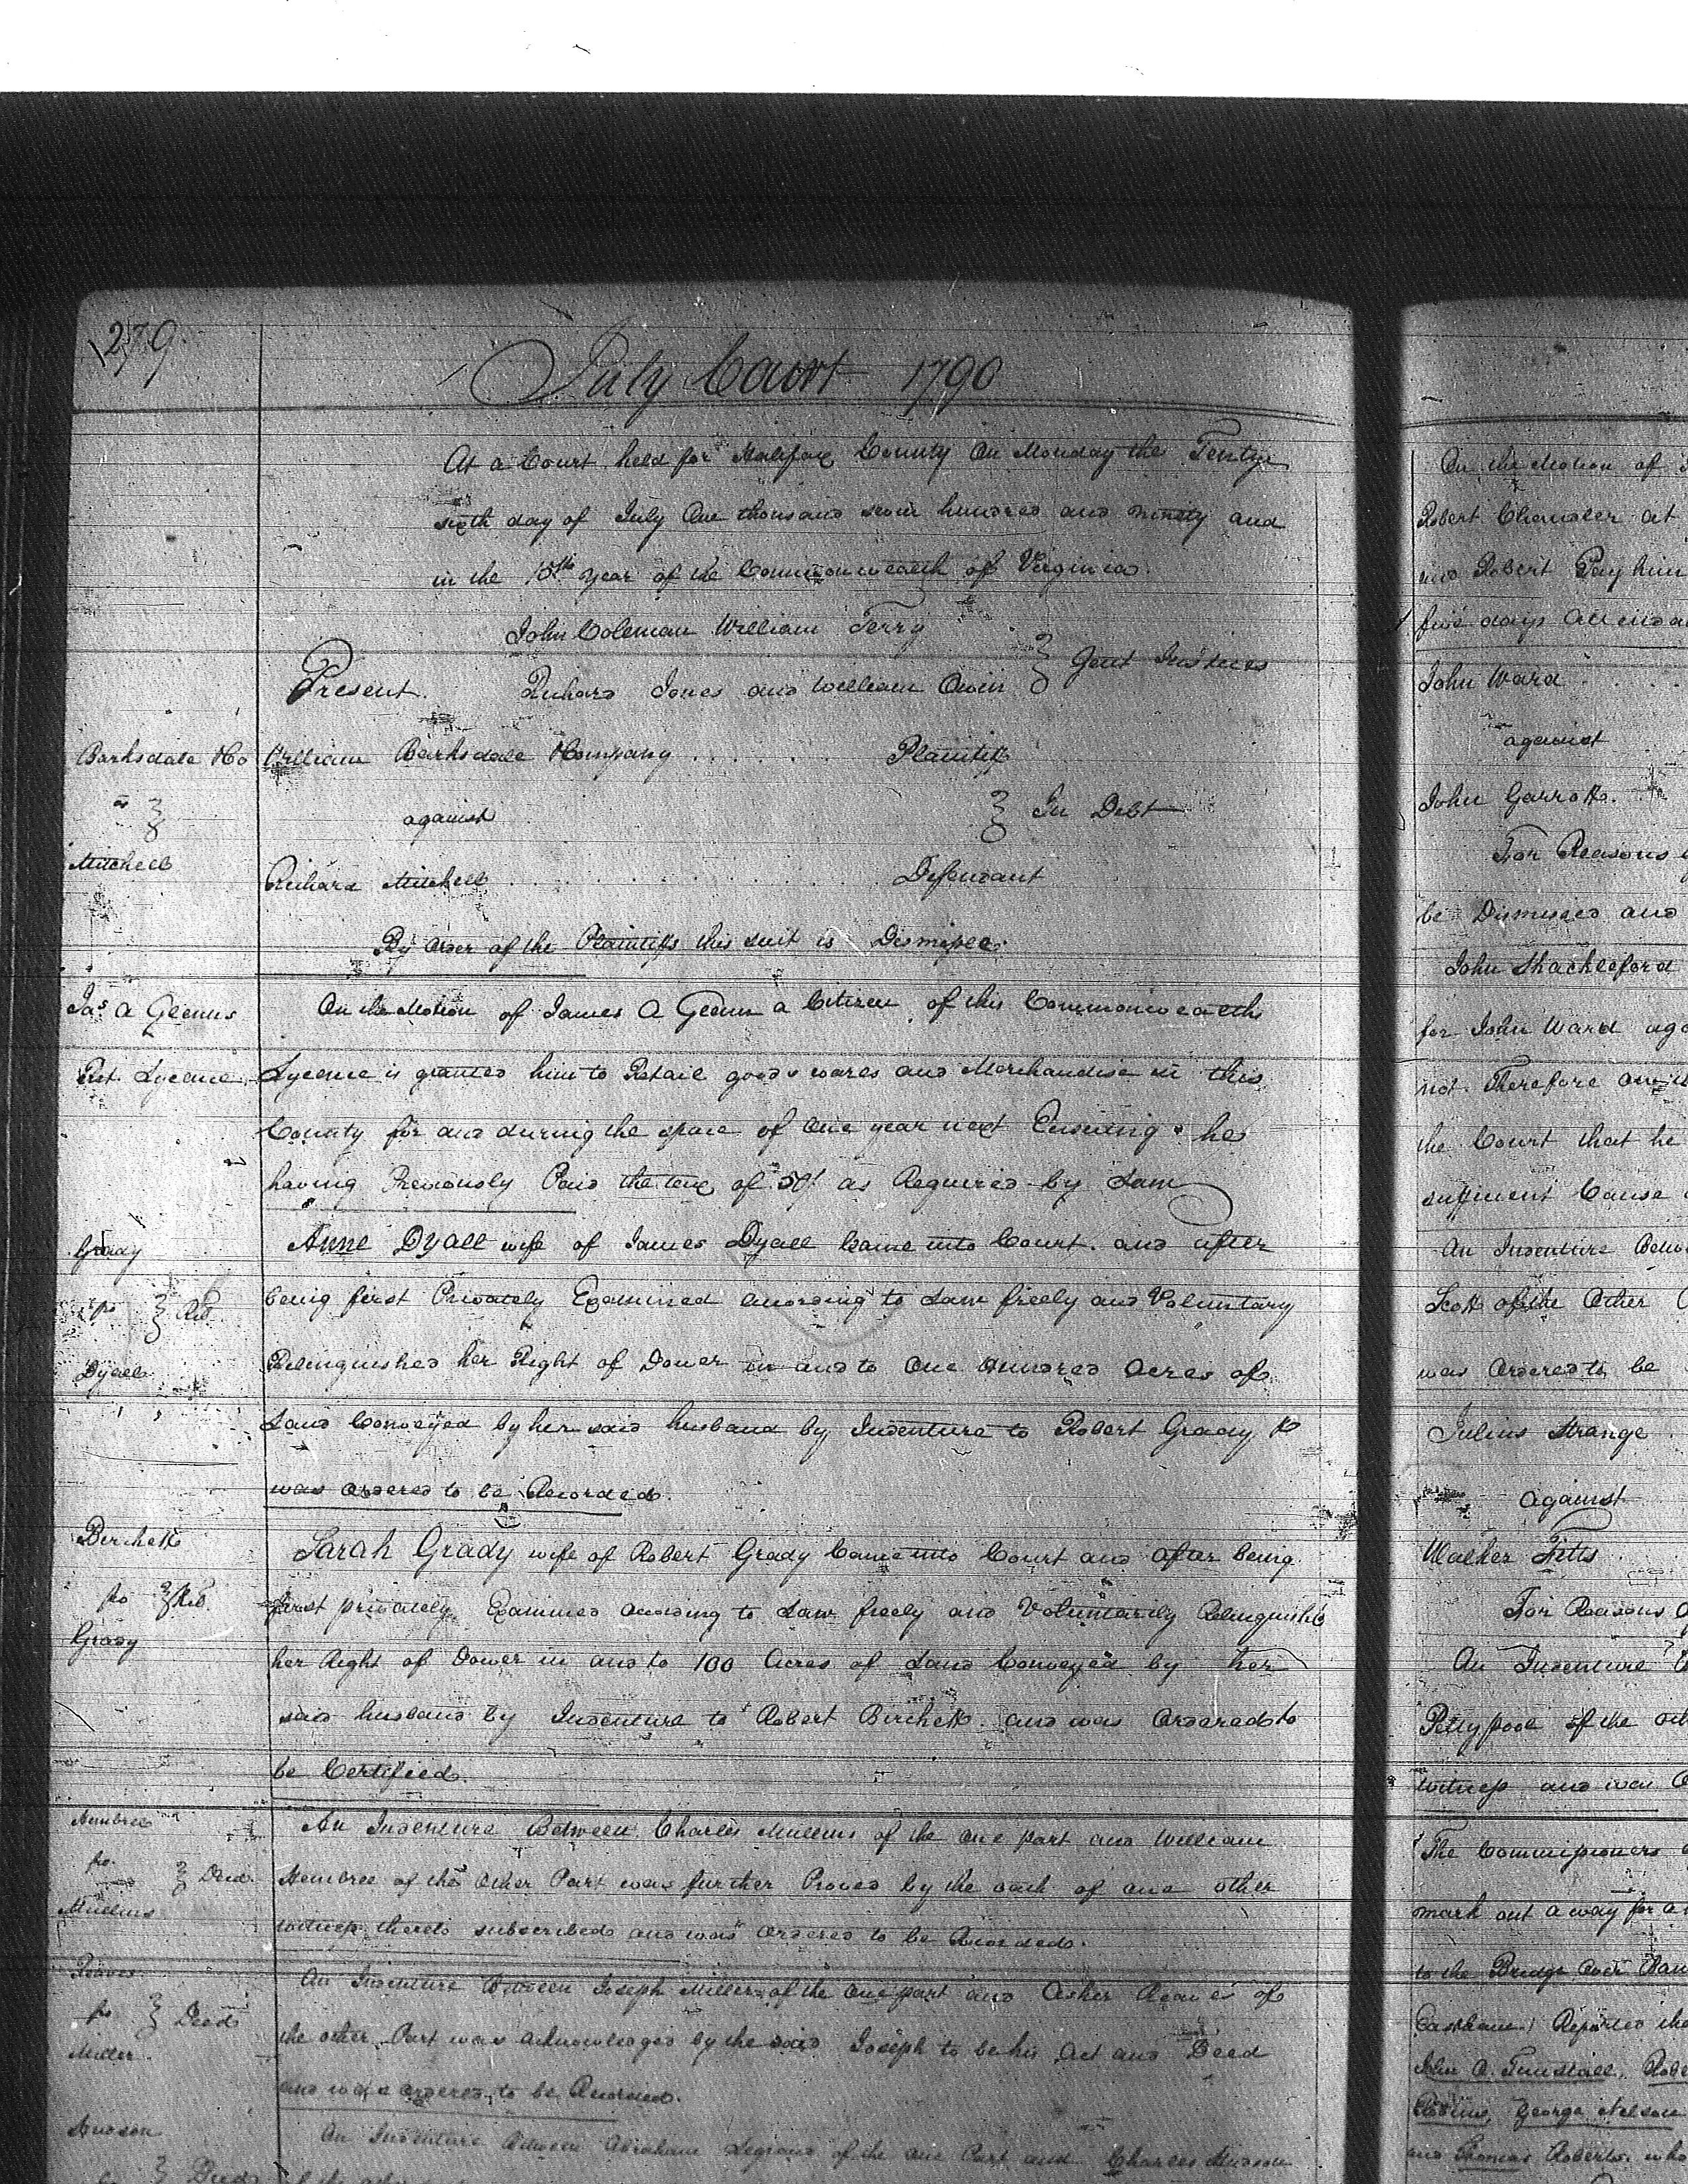 279.
July Court 1790
At a Court held for Halifax County On Monday the Tenty
sixth day of July One thousand seven hundred and ninety and
in the 15th year of the Commonwealth of Virginia.
John Coleman William Terry
Present. Richard Jones and William Owen } Gent Justices
Barksdale &Co William Barksdale &Company . . . . . . Plaintiff
vs } against } In Debt
Mitchell
Richard Mitchell . . . . . . . . . . . . Defendant
By order of the Plaintiffs this suit is Dismissed.
Jas A Glenns On the Motion of James A Glenn a Citizen of this Commonwealth
Ret. Lycence. Lycence is granted him to Retail goods wares and Merchandise in this
County for and during the space of One year next Ensuing he
having Previously Paid the tax of as Required by Law
Grady Anne Dyall wife of James Dyall Came into Court. and after
fro } Rel. being first Privately Examined according to Law freely and Voluntary
Dyall Relinquished her Right of Dower in and to One Hundred Acres of
Land Conveyed by her said husband by Indenture to Robert Grady &
was ordered to be Recorded.
Birchett Sarah Grady wife of Robert Grady Came into Court and after being
fro } Rel. first privately Examined according to Law freely and Voluntarily Relinquishd
Grady her Right of Dower in and to 100 Acres of Land Conveyed by her
said husband by Indenture to Robert Birchett and was Ordered to
be Certified.
Hembree An Indenture Between Charles Mullins of the One part and William
fro. } Deed. Hembree of the Other Part was further Proved by the oath of one other
Mullins witness thereto subscribed and was Ordered to be Recorded.
Reaves An Indenture Between Joseph Miller of the One part and Asher Reaves of
fro } Deed the other Part was acknowledged by the said Joseph to be his Act and Deed
Miller. and was ordered to be Recorded.
Hudson An Indenture Between Abraham Legrand of the One Part and Charles Hudson
} Deed of the other
On the Motion of
Robert Chandler at
and Robert Pay him
five days Attenda
John Ward
against
John Garrott.
For Reasons
be Dismissed and
John Shackleford
for John Ward aga
not. Therefore
the Court that he
sufficient Cause
An Indenture Betw
Scott of the Other
was Ordered to be
Julius Strange
Against
Walker Fitts
For Reasons
An Indenture
Pettypool of the oth
witness and was
The Commissioners
mark out a way for a
to the Bridge Over Ban
Reported the
John A. Tunstall, Robe
George Nelson
and Thomas Roberts. who